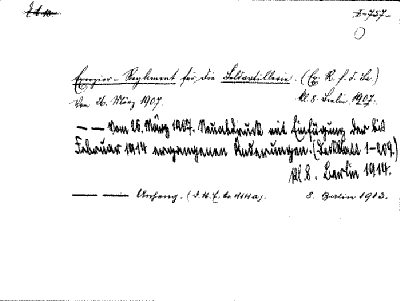 Exerzier-Reglement für die Feldartillerie. (Ex. R. f. d. Fa.)
Vom 26. März 1907. kl. 8. Berlin 1907.
— — Vom 26. März 1907. Neuabdruck mit Einfügung der bis
Februar 1914 ergangenen Änderungen. (Deckblatt 1-209.)
kl. 8. Berlin 1914.
— — Anhang. (D. V. E. 8. Berlin 1913.